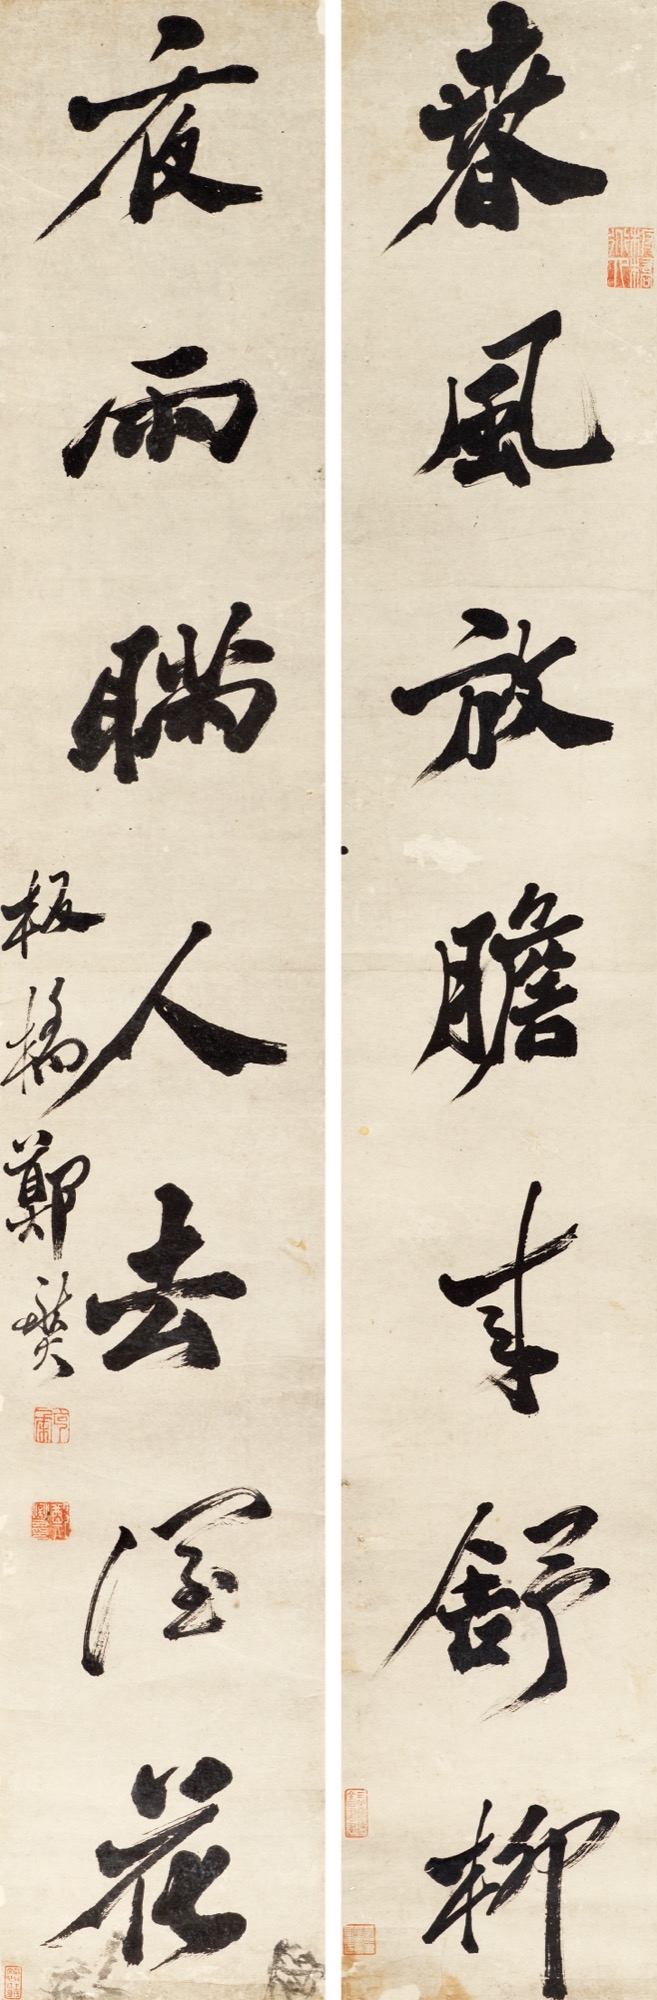 春風放膽来舒柳
夜雨瞞人去潤花
板橋鄭燮